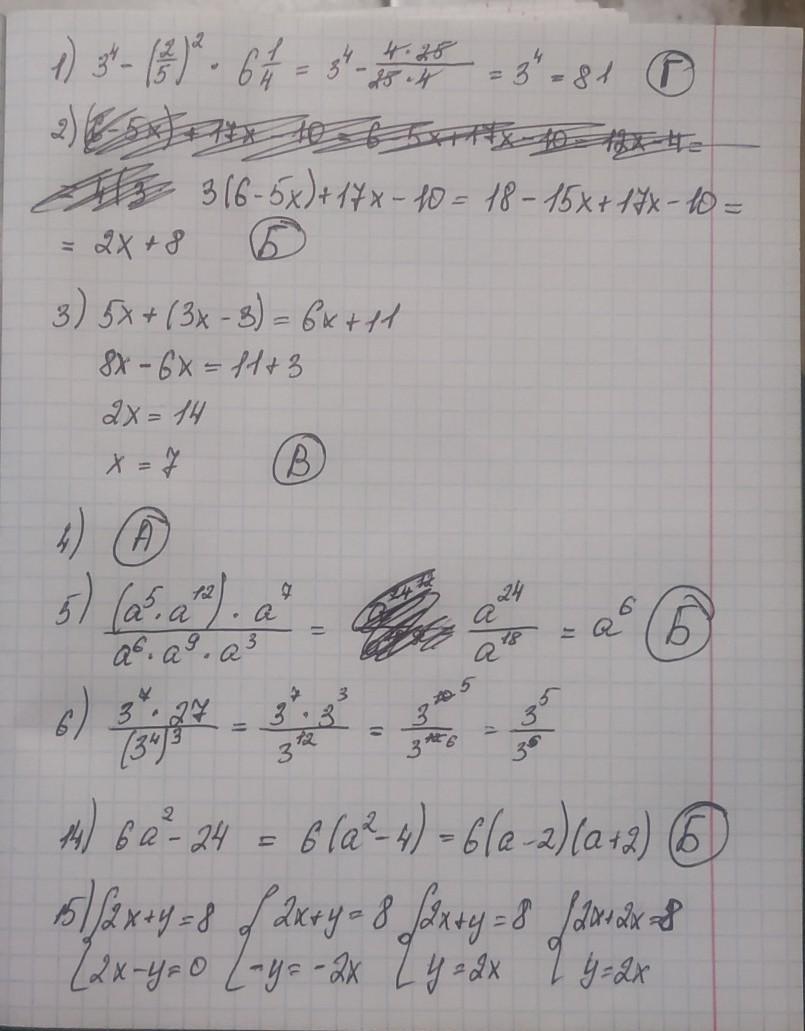 1) 3⁴ - (2/5)² · 6 1/4 = 3⁴ - 4·25/25·4 = 3⁴ = 81 Г
2) (6-5x) + 17x - 10 = 6-5x+17x-10 = 12x-4 =
3(6-5x)+17x-10 = 18-15x+17x-10 =
= 2x+8 Б
3) 5x+(3x-3) = 6x+11
8x-6x = 11+3
2x = 14
x = 7 В
4) А
5) (a⁵·a¹²)·a⁷/a⁶·a⁹·a³ = a²⁴/a¹⁸ = a⁶ Б
6) 3⁷·27/(3⁴)³ = 3⁷·3³/3¹² = 3¹⁰ ⁵/3¹² ⁶ = 3⁵/3⁶
14) 6a²-24 = 6(a²-4) = 6(a-2)(a+2) Б
15) { 2x+y=8 { 2x+y=8 { 2x+y=8 { 2x+2x=8
2x-y=0 -y=-2x y=2x y=2x